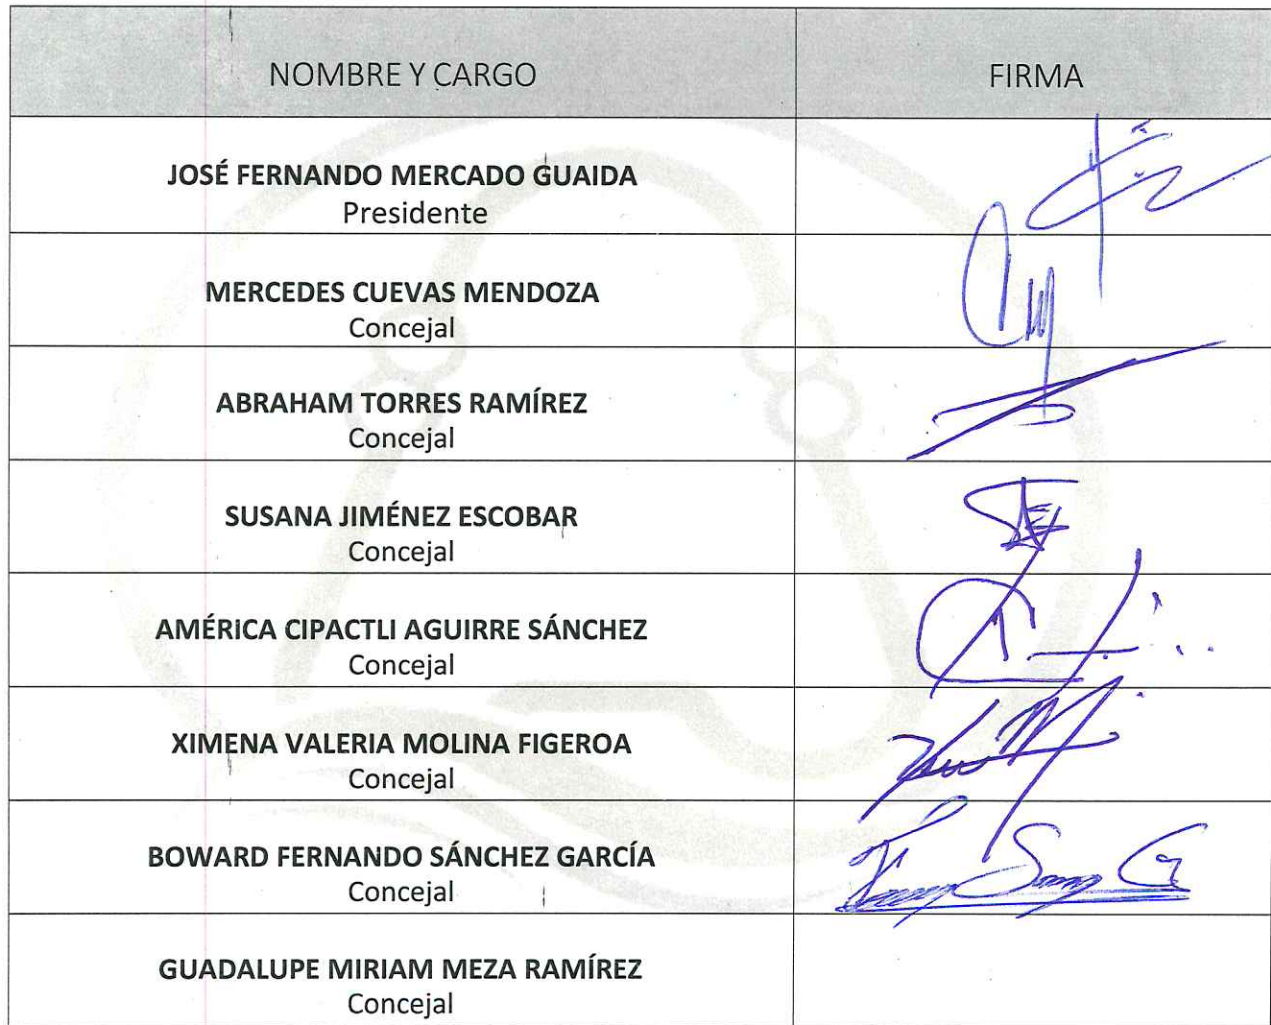 NOMBRE Y CARGO
FIRMA
JOSÉ FERNANDO MERCADO GUAIDA
Presidente
MERCEDES CUEVAS MENDOZA
Concejal
ABRAHAM TORRES RAMÍREZ
Concejal
SUSANA JIMÉNEZ ESCOBAR
Concejal
AMÉRICA CIPACTLI AGUIRRE SÁNCHEZ
Concejal
XIMENA VALERIA MOLINA FIGEROA
Concejal
BOWARD FERNANDO SÁNCHEZ GARCÍA
Concejal
GUADALUPE MIRIAM MEZA RAMÍREZ
Concejal